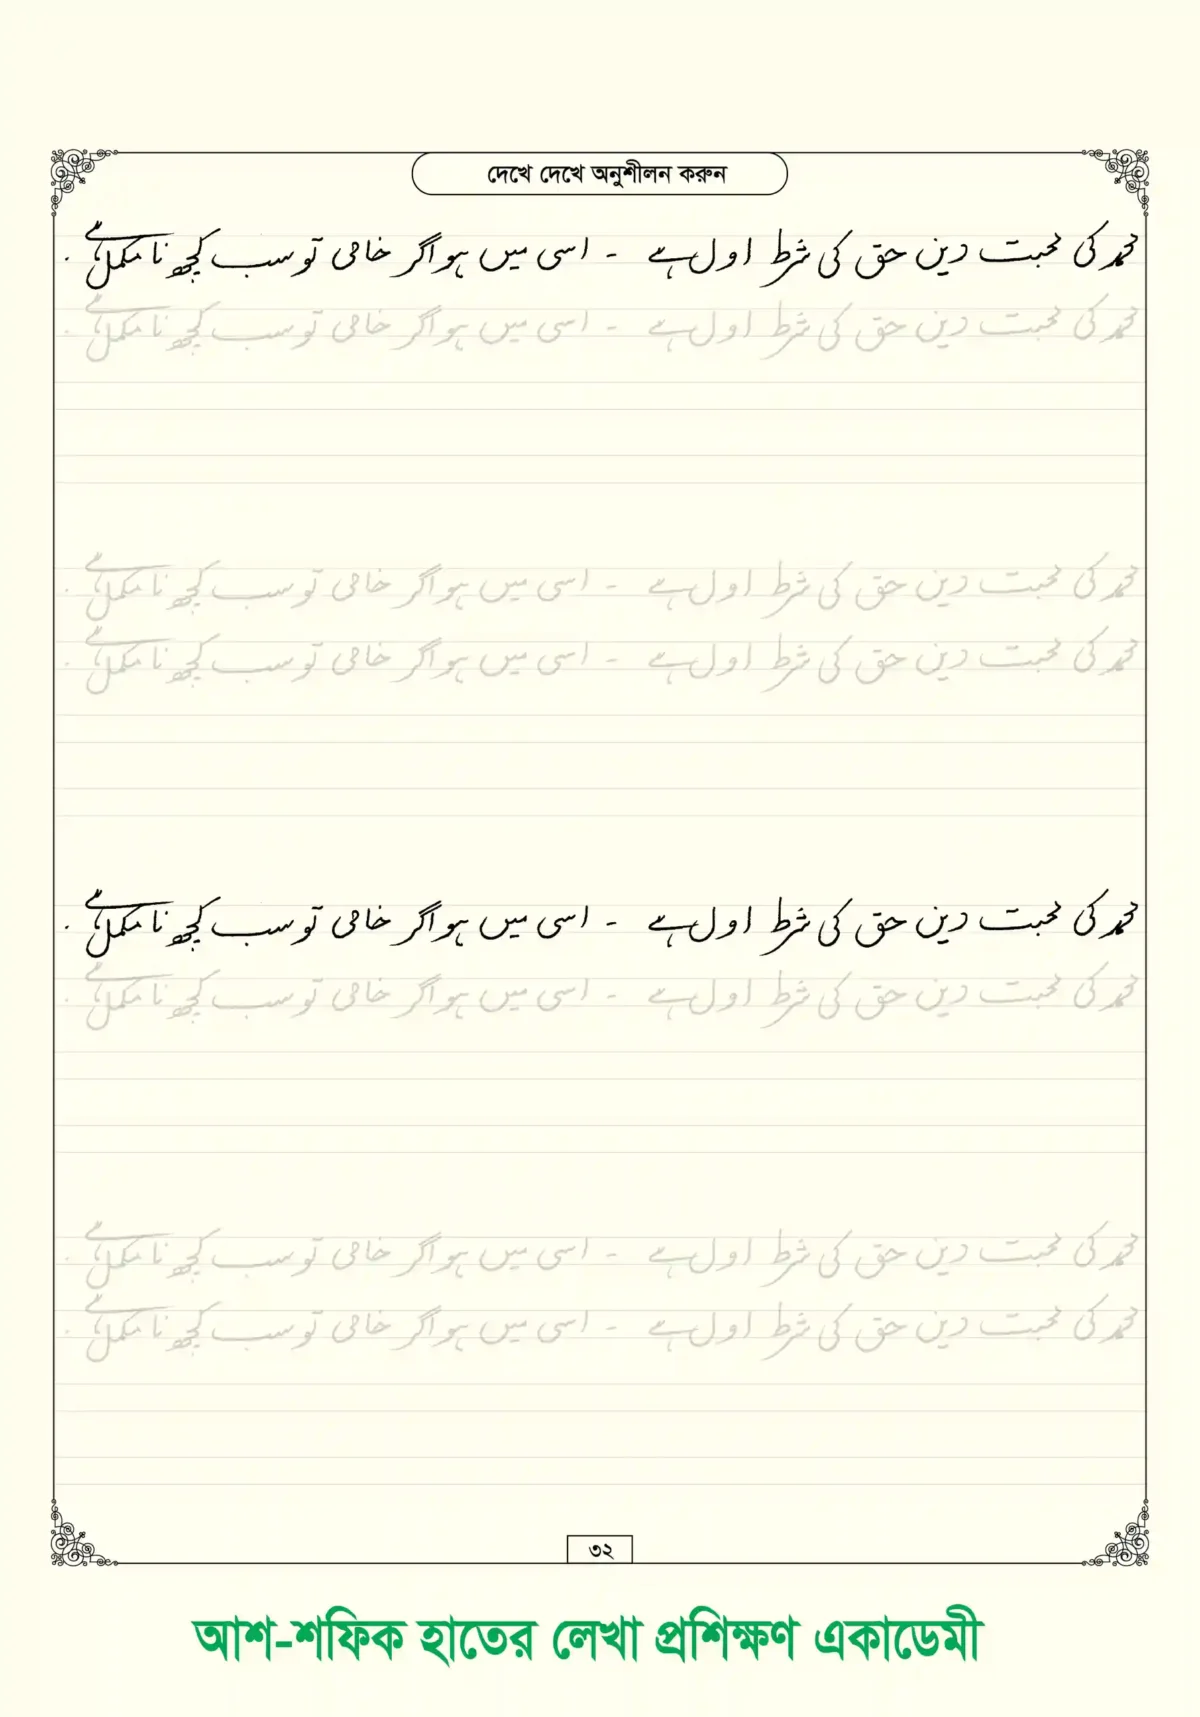 দেখে দেখে অনুশীলন করুন
محمد کی محبت دین حق کی شرط اول ہے - اسی میں ہو اگر خامی تو سب کچھ نامکمل ہے .
محمد کی محبت دین حق کی شرط اول ہے - اسی میں ہو اگر خامی تو سب کچھ نامکمل ہے .
محمد کی محبت دین حق کی شرط اول ہے - اسی میں ہو اگر خامی تو سب کچھ نامکمل ہے .
محمد کی محبت دین حق کی شرط اول ہے - اسی میں ہو اگر خامی تو سب کچھ نامکمل ہے .
محمد کی محبت دین حق کی شرط اول ہے - اسی میں ہو اگر خامی تو سب کچھ نامکمل ہے .
محمد کی محبت دین حق کی شرط اول ہے - اسی میں ہو اگر خامی تو سب کچھ نامکمل ہے .
محمد کی محبت دین حق کی شرط اول ہے - اسی میں ہو اگر خامی تو سب کچھ نامکمل ہے .
محمد کی محبت دین حق کی شرط اول ہے - اسی میں ہو اگر خامی تو سب کچھ نامکمل ہے .
৩২
আশ-শফিক হাতের লেখা প্রশিক্ষণ একাডেমী